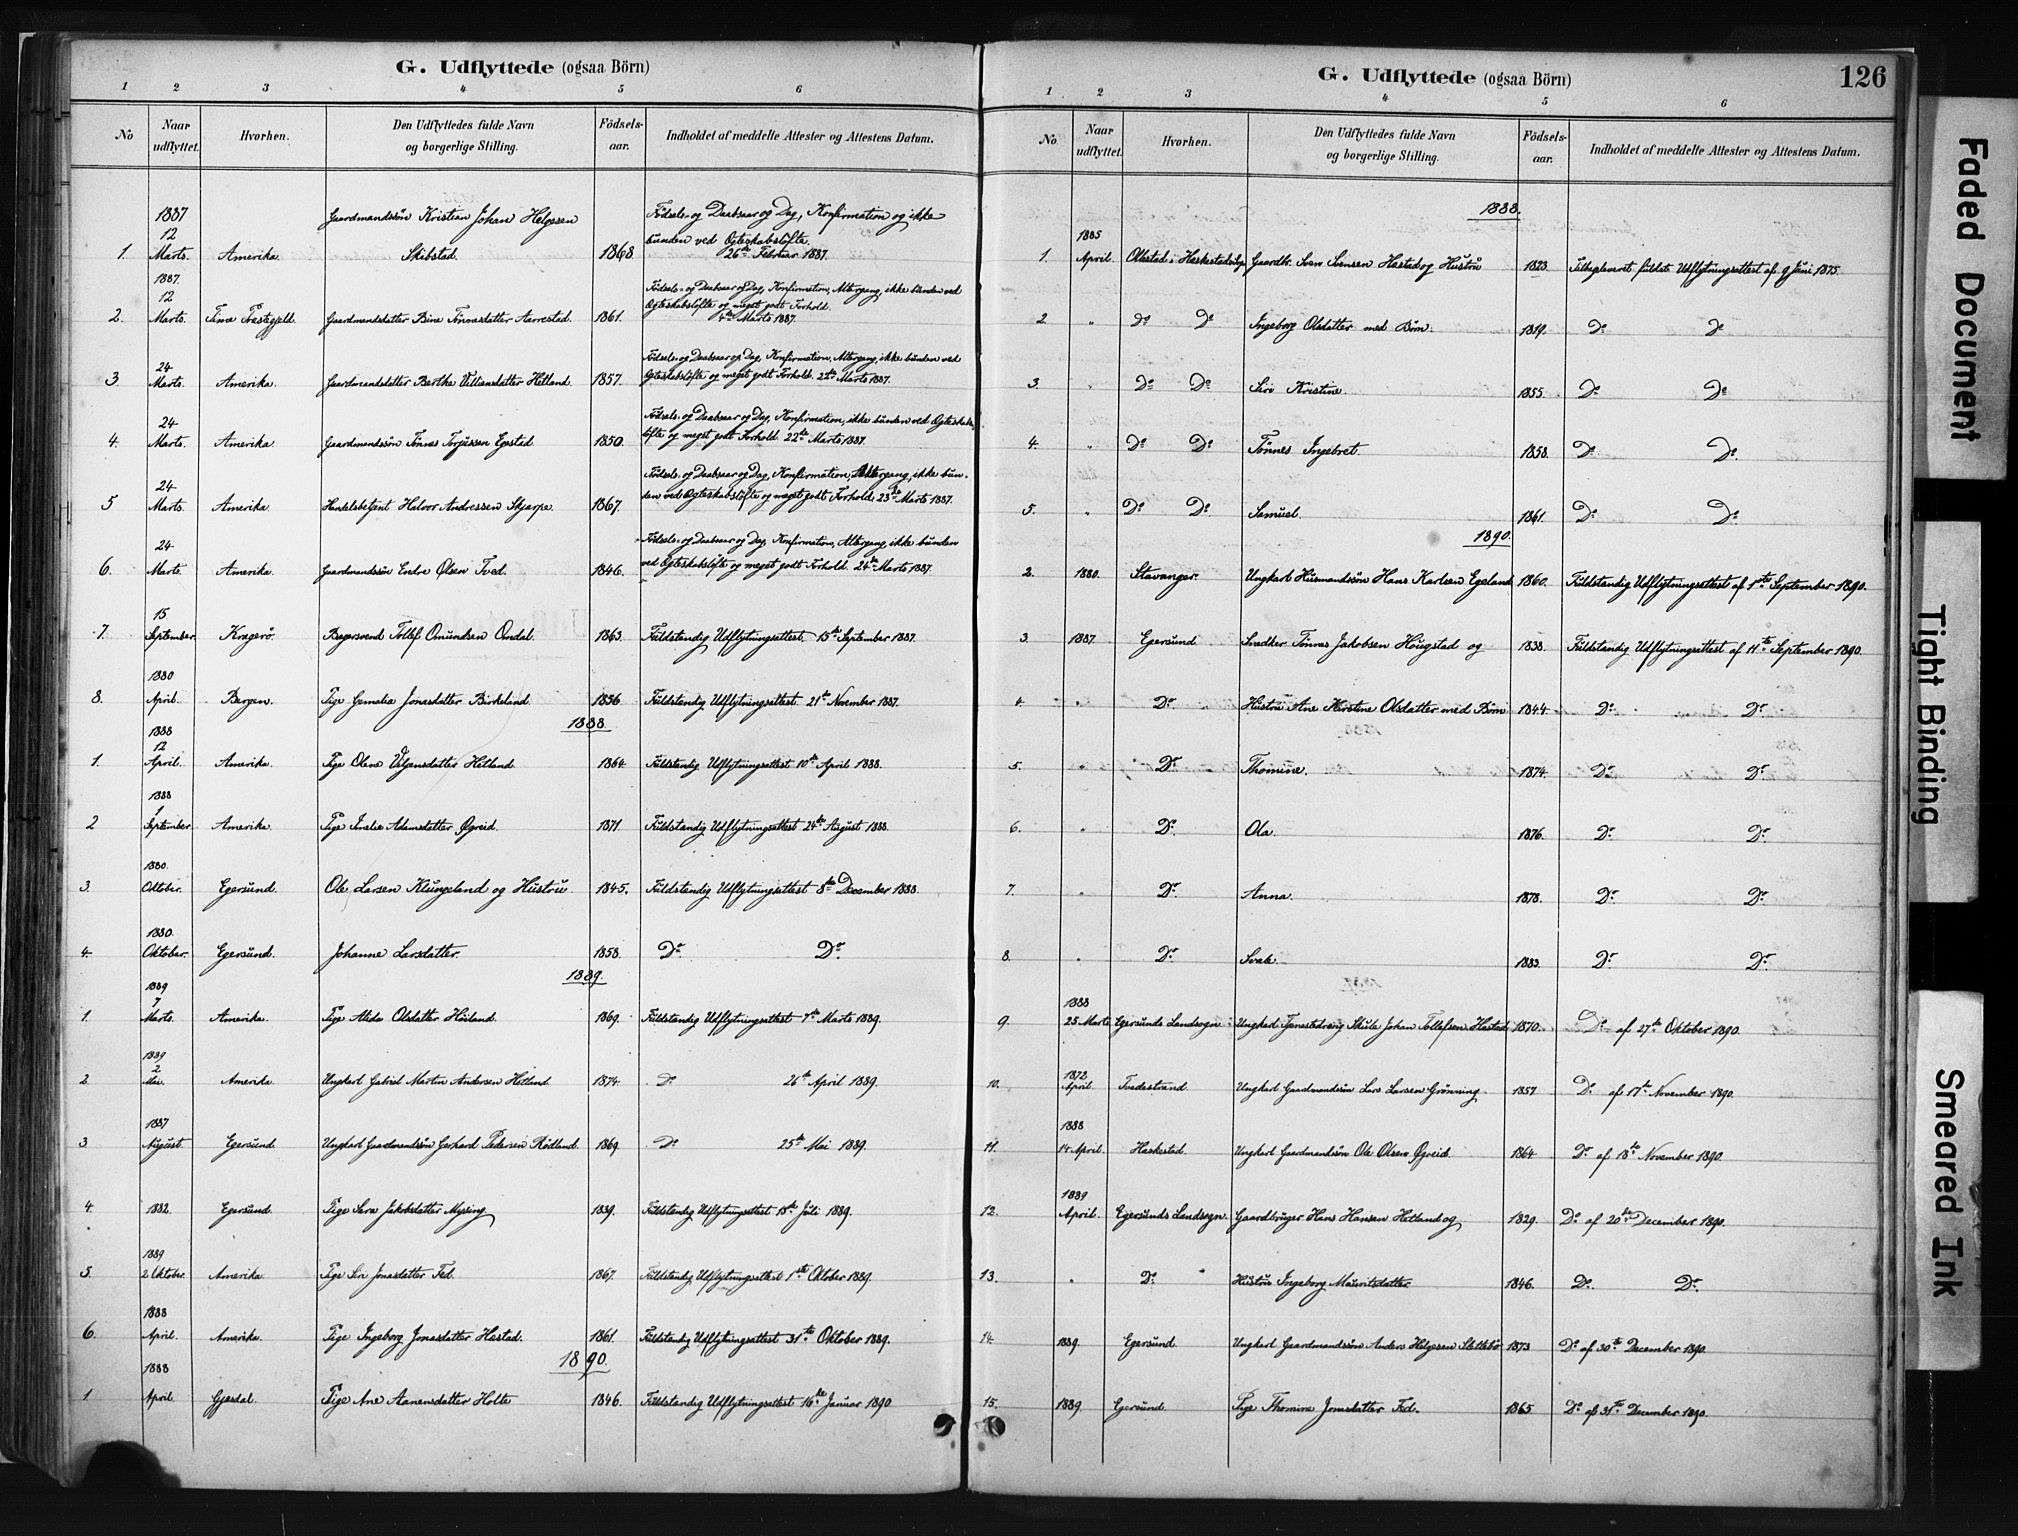 G. Udflyttede (ogsaa Börn)
1 2 3 4 5 6
No Naar udflyttet. Hvorhen. Den Udflyttedes fulde Navn og borgerlige Stilling. Födsels-aar. Indholdet af meddelte Attester og Attestens Datum.
1. 1887 12 Marts. Amerika. Gaardmandssøn Kristian Johan Helgesen Skibstad. 1868. Fødsels- og Daabsaar og Dag, Konfirmation og ikke bunden ved Ægteskabsløfte. 26de Februar 1887.
2. 1887. 12 Marts. Time Præstegjeld. Gaardmandsdatter Bine Tønnesdatter Aarrestad. 1861. Fødsels- og Daabsaar og Dag, Konfirmation, Altergang, ikke bunden ved Ægteskabsløfte og meget godt Forhold. 4de Marts 1887.
3. 24 Marts. Amerika. Gaardmandsdatter Berthe Villiansdatter Hetland. 1857. Fødsels- og Daabsaar og Dag, Konfirmation, Altergang, ikke bunden ved Ægteskabsløfte og meget godt Forhold. 22de Marts 1887.
4. 24 Marts. Amerika. Gaardmandssøn Tønnes Torjussen Epstad. 1850. Fødsels- og Daabsaar og Dag, Konfirmation, ikke bunden ved Ægteskabsløfte og meget godt Forhold. 22de Marts 1887.
5 24 Marts. Amerika. Handelsbetjent Halvor Andressen Skjerpe. 1867. Fødsels- og Daabsaar og Dag, Konfirmation, Altergang, ikke bunden ved Ægteskabsløfte og meget godt Forhold. 23de Marts 1887.
6. 24 Marts. Amerika. Gaardmandssøn Endre Olsen Tved. 1846. Fødsels- og Daabsaar og Dag, Konfirmation, Altergang, ikke bunden ved Ægteskabsløfte og meget godt Forhold. 24de Marts 1887.
7. 15 September. Kragerø. Bagersvend Tollef Omundsen Omdal. 1863. Fuldstændig Udflytningsattest. 15de September 1887.
8. 1880 April. Bergen. Pige Jonasdatter Birkeland. 1856 Fuldstændig Udflytningsattest. 21de November 1887.
1888.
1. 1888 12 April. Amerika. Pige Olene Hetland 1864. Fuldstændig Udflytningsattest 10de April 1888.
2 1888 1 September. Amerika. Pige Adamsdatter Øgreid. 1871. Fuldstændig Udflytningsattest 24de August 1888.
3. 1880. Oktober. Egersund. Ole Larsen Klungeland og Hustru 1845. Fuldstændig Udflytningsattest 8de December 1888.
4. 1880. Oktober. Egersund. Johanne Larsdatter. 1858. Do Do
1889.
1. 1889 7 Marts. Amerika. Pige Alida Olsdatter Høiland. 1869. Fuldstændig Udflytningsattest 7de Marts 1889.
2. 1889 2 Mai. Amerika Ungkarl Gabriel Martin Andersen Hetland 1874. Do 26de April 1889.
3 1887 August. Egersund. Ungkarl Gaardmandssøn Gerhard Pedersen Rødland. 1869. Do 25de Mai 1889.
4. 1882. Egersund. Pige Sara Jakobsdatter Mysing 1839. Fuldstændig Udflytningsattest 18de Juli 1889.
5. 1889 2 Oktober. Amerika. Pige Siri Jonasdatter Fed. 1867. Fuldstændig Udflytningsattest 1ste Oktober 1889.
6. 1888 April. Amerika. Pige Ingeborg Jonasdatter Hæstad. 1861. Fuldstændig Udflytningsattest 31te Oktober 1889.
1890.
1 1888 April. Gjesdal. Pige Ane Aanensdatter Holte 1846. Fuldstændig Udflytningsattest 16de Januar 1890
G. Udflyttede (ogsaa Börn) 126
1 2 3 4 5 6
No Naar udflyttet. Hvorhen. Den Udflyttedes fulde Navn og borgerlige Stilling. Födsels-aar. Indholdet af meddelte Attester og Attestens Datum.
1888.
1. 1885 April i Heskestad Gaardbr. Sven Svensen Hæstad og Hustru 1823. Tilbageleveret fuldst. Udflytningsattest af 9 Juni 1875.
2. " Do Do Ingeborg Olsdatter med Børn. 1819. Do Do
3. " Do Do Siri Kristine. 1855. Do Do
4. " Do Do Tønnes Ingebret. 1858. Do Do
5. " Do Do Samuel. 1861. Do Do
1890.
2. 1880. Stavanger. Ungkarl Husmandssøn Hans Karlsen Egeland 1860. Fuldstændig Udflytningsattest af 1ste September 1890.
3. 1887. Egersund Snedker Tønnes Jakobsen Hougstad og 1838. Fuldstændig Udflytningsattest af 11te September 1890.
4. " Do Hustru Ane Kirstine Olsdatter med Børn 1844. Do Do
5. " Do Thomine. 1874. Do Do
6. " Do Ola. 1876. Do Do
7. " Do Anna. 1878. Do Do
8. " Do 1883. Do Do
9. 1888 25 Marts Egersunds Landsogn. Ungkarl Tjenestedreng Skule Johan Tollefsen Hæstad 1870. Do af 27de Oktober 1890.
10. 1872 April Tvedestrand Ungkarl Gaardmandssøn Lars Larsen Grønning 1857 Do af 17de November 1890.
11. 1888 14 April. Heskestad. Ungkarl Gaardmandssøn Ole Olsen Øgreid. 1864. Do af 18de November 1890.
12. 1889 April. Egersunds Landsogn. Gaardbruger Hans Hansen Hetland og 1829. Do af 20de December 1890.
13. " Do " Hustru Ingeborg Mauritsdatter 1846. Do Do
14. 1889. Egersund. Ungkarl Gaardmandssøn Anders Helgesen Slettebø 1873 Do af 30te December 1890.
15. 1889. Egersund. Pige Thomine Jonasdatter Fed. 1865 Do af 31te December 1890.
Faded Document
Tight Binding
Smeared Ink